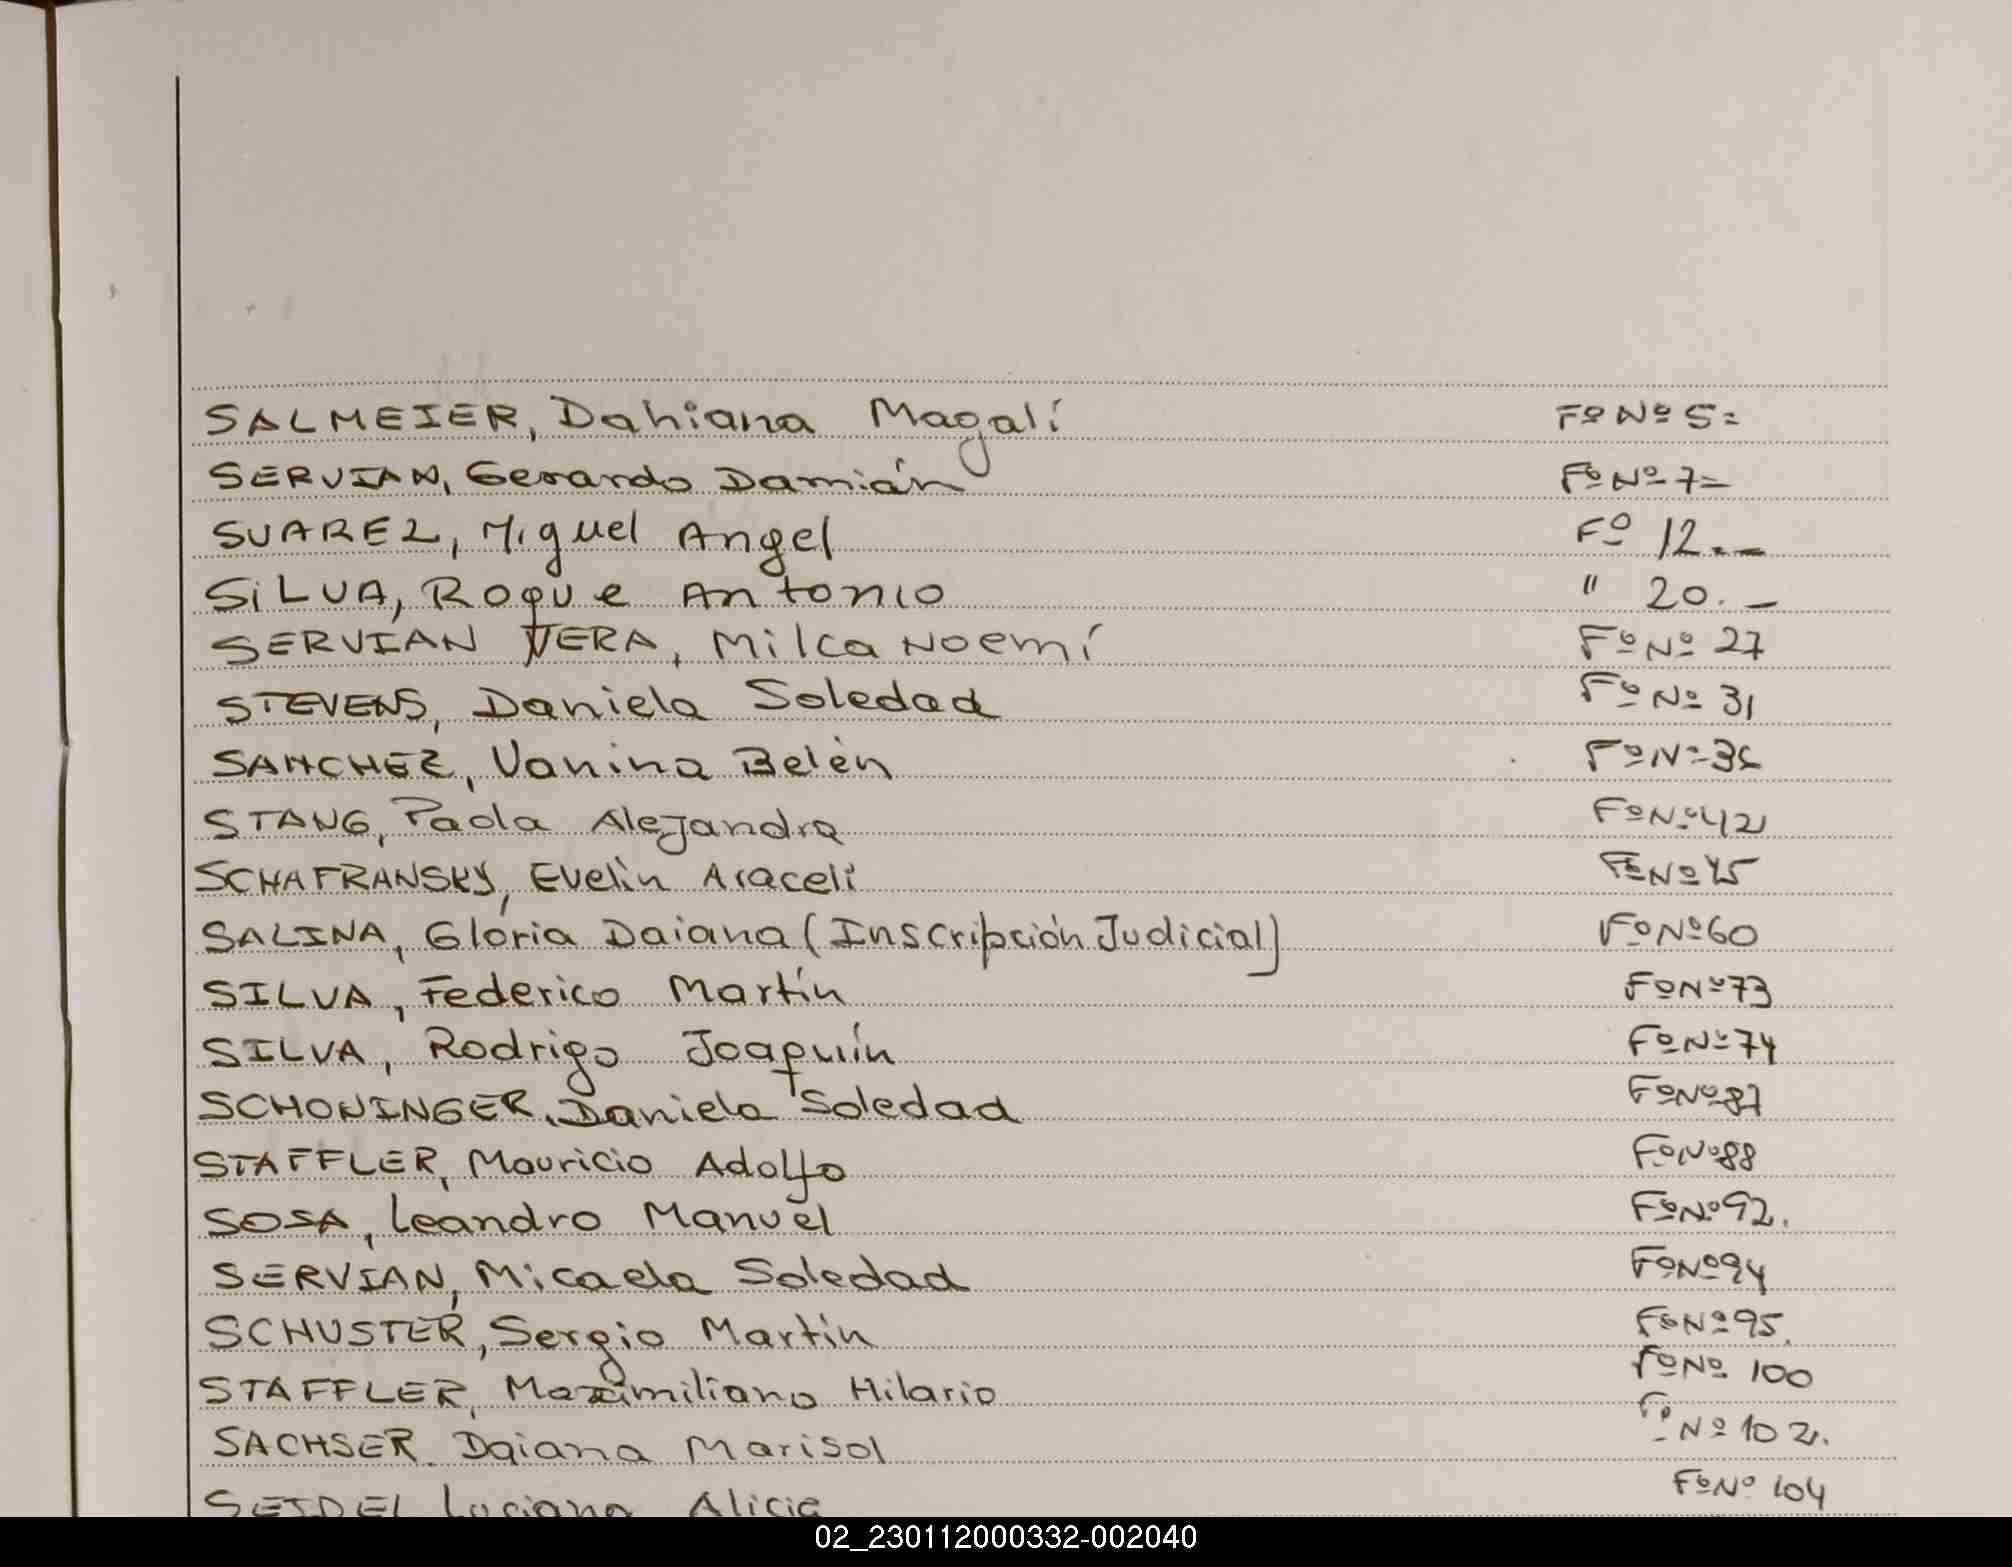 SALMEIER, Dahiana Magalí Fº Nº 5=
SERVIAN, Gerardo Damián Fº Nº 7=
SUAREZ, Miguel Angel Fº 12.-
SiLVA, Roque Antonio " 20.-
SERVIAN VERA, Milca Noemí Fº Nº 27
STEVENS, Daniela Soledad Fº Nº 31
SANCHEZ, Vanina Belén Fº Nº
STANG, Paola Alejandra Fº Nº 42
SCHAFRANSKY, Evelin Araceli Fº Nº 45
SALINA, Gloria Daiana (Inscripción Judicial) Fº Nº 60
SILVA, Federico Martín Fº Nº 73
SILVA, Rodrigo Joaquín Fº Nº 74
SCHONINGER, Daniela Soledad Fº Nº 87
STAFFLER, Mauricio Adolfo Fº Nº 88
SOSA, Leandro Manuel Fº Nº 92.
SERVIAN, Micaela Soledad Fº Nº 94
SCHUSTER, Sergio Martín Fº Nº 95.
STAFFLER, Maximiliano Hilario Fº Nº 100
SACHSER. Daiana Marisol Fº Nº 102.
SEIDEL Luciana Alicia Fº Nº 104
02_230112000332-002040